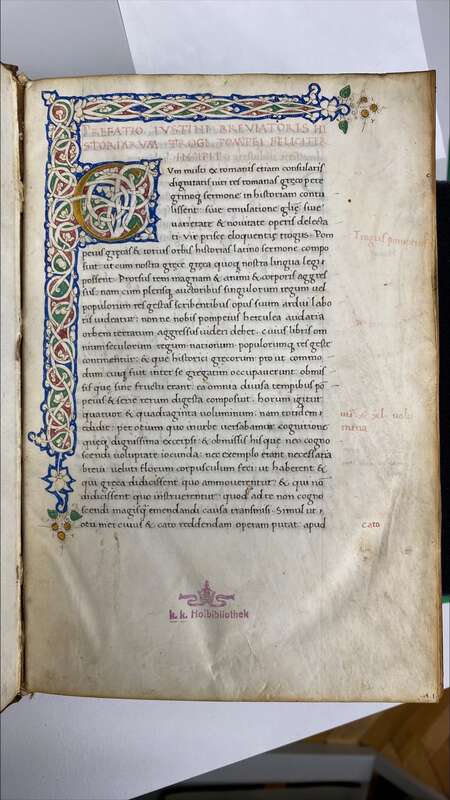 PREFATIO IVSTINI BREVIATORIS HI
STORIARVM TROGI POMPEI FELICITER
INCIPIT
CVm multi ex romanis etiam consularis
dignitatis uiri res romanas greco pere
grinoq; sermone in historiam contu
lissent: siue emulatione glię siue
uarietate & nouitate operis delecta
ti. Vir priscę eloquentię trogus. Pom
peius gręcas & totius orbis historias latino sermone compo
suit: ut cum nostra gręce gręca quoq; nostra lingua legi
possent. Prorsus rem magnam & animi & corporis aggres
sus. nam cum plerisq; auctoribus singulorum regum uel
populorum res gestas scribentibus opus suum ardui labo
ris uideatur: non ne nobis pompeius herculea audatia
orbem terrarum aggressus uideri debet. cuius libris om
nium seculorum regum nationum populorumq; res gestę
continentur: & quę historici grecorum prout commo
dum cuiq; fuit inter se gregatim occupauerunt. obmis
sis quę sine fructu erant: ea omnia diuisa temporibus po
peius & serie rerum digesta composuit. horum igitur
quatuor & quadraginta uoluminum. nam totidem e
didit: per otium quo in urbe uersabamur. cognitione
queq; dignissima excerpsi: & obmissis his que nec cogno
scendi uoluptate iocunda: nec exemplo erant necessaria
breue ueluti florum corpusculum feci: ut haberent &
qui greca didicissent quo ammouerentur: & qui nō
didicissent quo instruerentur. quod ad te non cogno
scendi magisq; emendandi causa transmisi. Simul ut
otii mei cuius & cato reddendam operam putat. apud
Trogus
uolu
mina
cato
k. k. Hofbibliothek